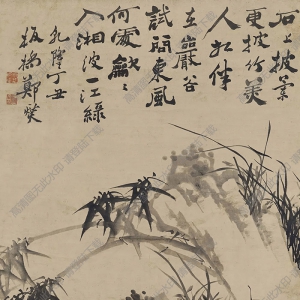 石上披蘭
更披竹美
人相伴
在巖谷
試問東風
何處歙歙
入湘波一江綠
乾隆丁丑
板橋鄭燮